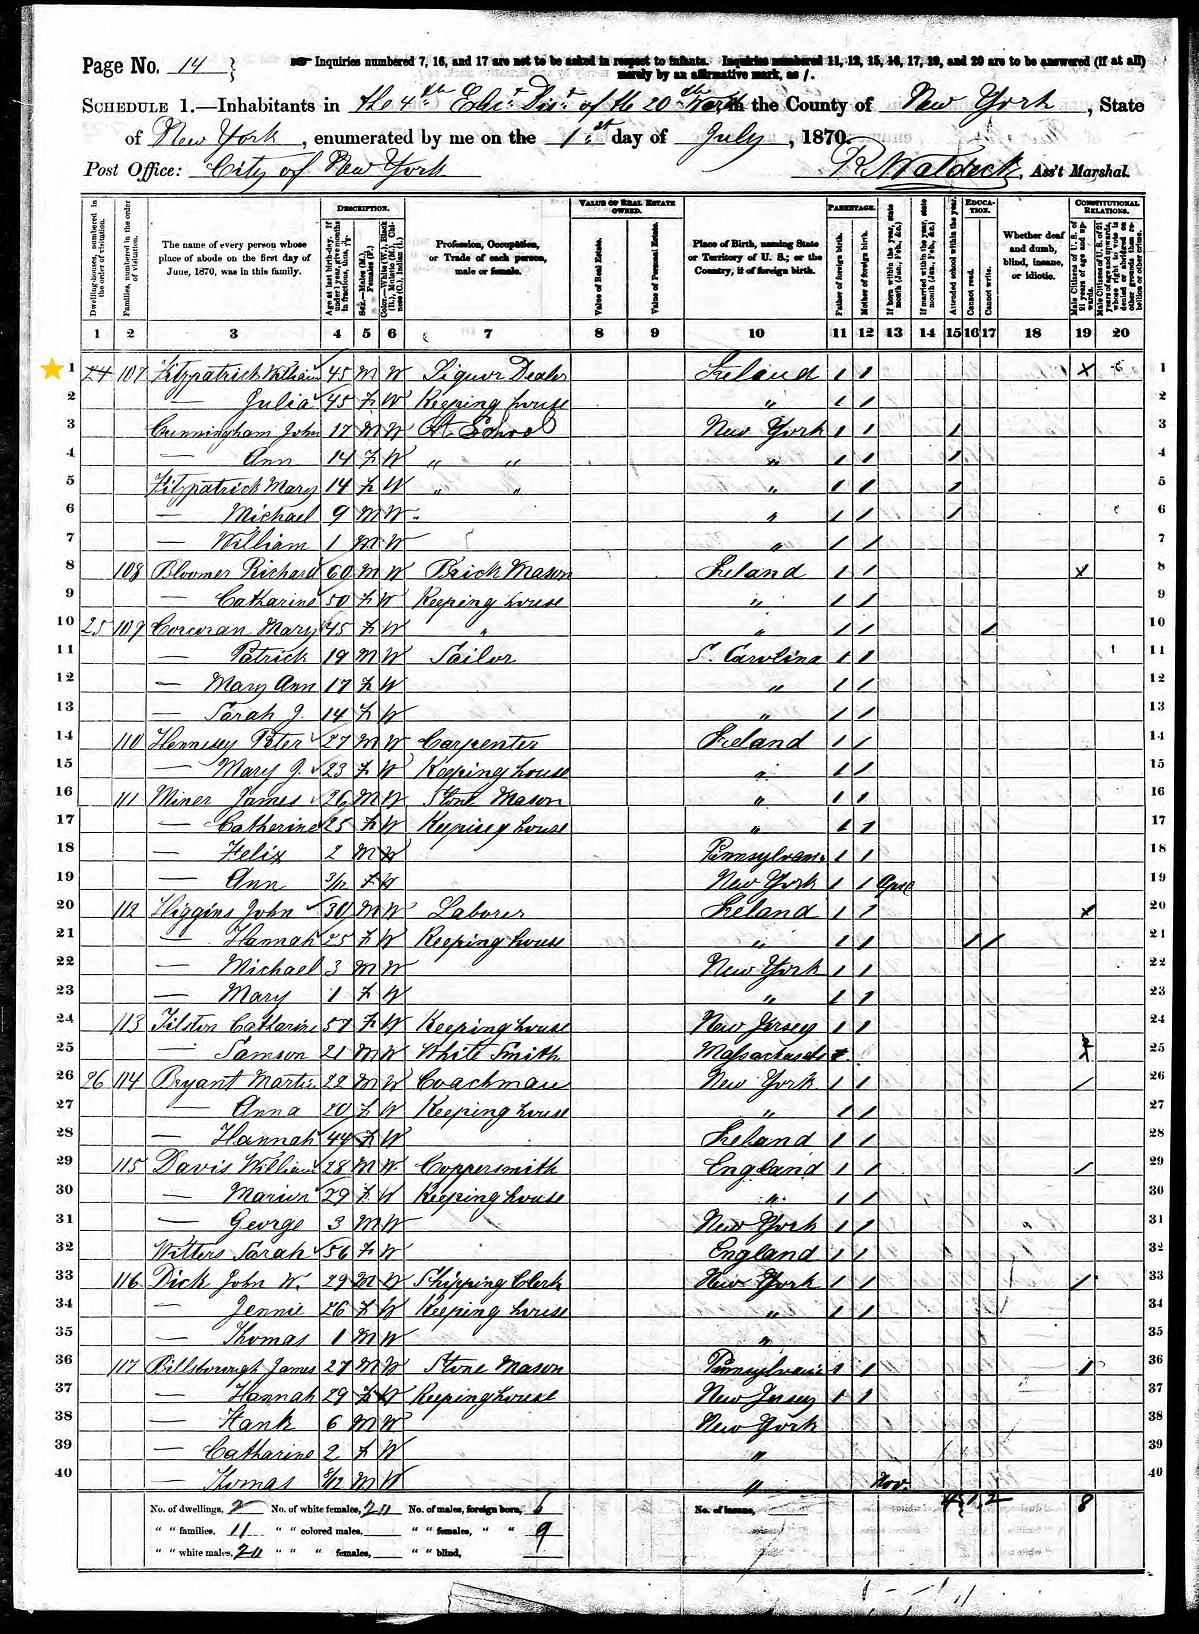 Page No. 14
Inquiries numbered 7, 16, and 17 are not to be asked in respect to infants. Inquiries numbered 11, 12, 15, 16, 17, 19, and 20 are to be answered (if at all) merely by an affirmative mark, as /.
SCHEDULE 1.—Inhabitants in the 4th Elec. Dist. of the 20th Ward, in the County of New York, State
of New York, enumerated by me on the 1st day of July, 1870.
Post Office: City of New York R Waldeck, Ass't Marshal.
Dwelling-houses, numbered in the order of visitation.
Families, numbered in the order of visitation.
The name of every person whose place of abode on the first day of June, 1870, was in this family.
DESCRIPTION.
Age at last birth-day. If under 1 year, give months in fractions, thus, 3/12.
Sex.—Males (M.), Females (F.)
Color.—White (W.), Black (B.), Mulatto (M.), Chinese (C.), Indian (I.)
Profession, Occupation, or Trade of each person, male or female.
VALUE OF REAL ESTATE OWNED.
Value of Real Estate.
Value of Personal Estate.
Place of Birth, naming State or Territory of U. S.; or the Country, if of foreign birth.
PARENTAGE.
Father of foreign birth.
Mother of foreign birth.
If born within the year, state month (Jan., Feb., &c.)
If married within the year, state month (Jan., Feb., &c.)
Attended school within the year.
EDUCATION.
Cannot read.
Cannot write.
Whether deaf and dumb, blind, insane, or idiotic.
CONSTITUTIONAL RELATIONS.
Male Citizens of U. S. of 21 years of age and upwards.
Male Citizens of U. S. of 21 years of age and upwards, whose right to vote is denied or abridged on other grounds than rebellion or other crime.
1 2 3 4 5 6 7 8 9 10 11 12 13 14 15 16 17 18 19 20
1 24 107 Fitzpatrick William 45 M W Liquor Dealer Ireland / / X 1
2 — Julia 45 F W Keeping house " / / 2
3 Cunningham John 17 M W At School New York / / / 3
4 — Ann 14 F W " " " / / / 4
5 Fitzpatrick Mary 14 F W " " " / / / 5
6 — Michael 9 M W " " / / / 6
7 — William 1 M W " / / 7
8 108 Bloomer Richard 60 M W Brick Mason Ireland / / X 8
9 — Catharine 50 F W Keeping house " / / 9
10 25 109 Corcoran Mary 45 F W " " / / / 10
11 — Patrick 19 M W Sailor S. Carolina / / 11
12 — Mary Ann 17 F W " / / 12
13 — Sarah J. 14 F W " / / 13
14 110 Hennesey Peter 27 M W Carpenter Ireland / / 14
15 — Mary J. 23 F W Keeping house " / / 15
16 111 Miner James 26 M W Stone Mason " / / 16
17 — Catherine 25 F W Keeping house " / / 17
18 — Felix 2 M W Pennsylvania / / 18
19 — Ann 3/12 F W New York / / April 19
20 112 Higgins John 30 M W Laborer Ireland / / X 20
21 — Hannah 25 F W Keeping house " / / / / 21
22 — Michael 3 M W New York / / 22
23 — Mary 1 F W " / / 23
24 113 Tilston Catharine 57 F W Keeping house New Jersey / / 24
25 — Samson 21 M W White Smith Massachusetts X 25
26 26 114 Bryant Martin 22 M W Coachman New York / / / 26
27 — Anna 20 F W Keeping house " / / 27
28 — Hannah 44 F W Ireland / / 28
29 115 Davis William 28 M W Coppersmith England / / / 29
30 — Marion 29 F W Keeping house " / / 30
31 — George 3 M W New York / / 31
32 Witters Sarah 56 F W England / / 32
33 116 Dick John W. 29 M W Shipping Clerk New York / / / 33
34 — Jennie 26 F W Keeping house " / / 34
35 — Thomas 1 M W " 35
36 117 Billsborough James 27 M W Stone Mason Pennsylvania / / / 36
37 — Hannah 29 F W Keeping house New Jersey / / 37
38 — Hank 6 M W New York 38
39 — Catharine 2 F W " 39
40 — Thomas 8/12 M W " Nov. 40
No. of dwellings, 2 No. of white females, 20 No. of males, foreign born, 6 No. of insane, 4 1 2 8
" " families, 11 " " colored males, " " females, " " 9
" " white males, 20 " " " females, " " blind,